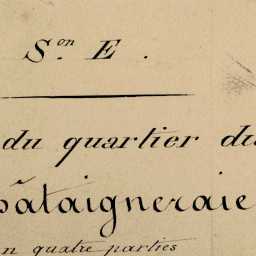 S.on E.
du quartier du
hâtaigneraie
n quatre parties